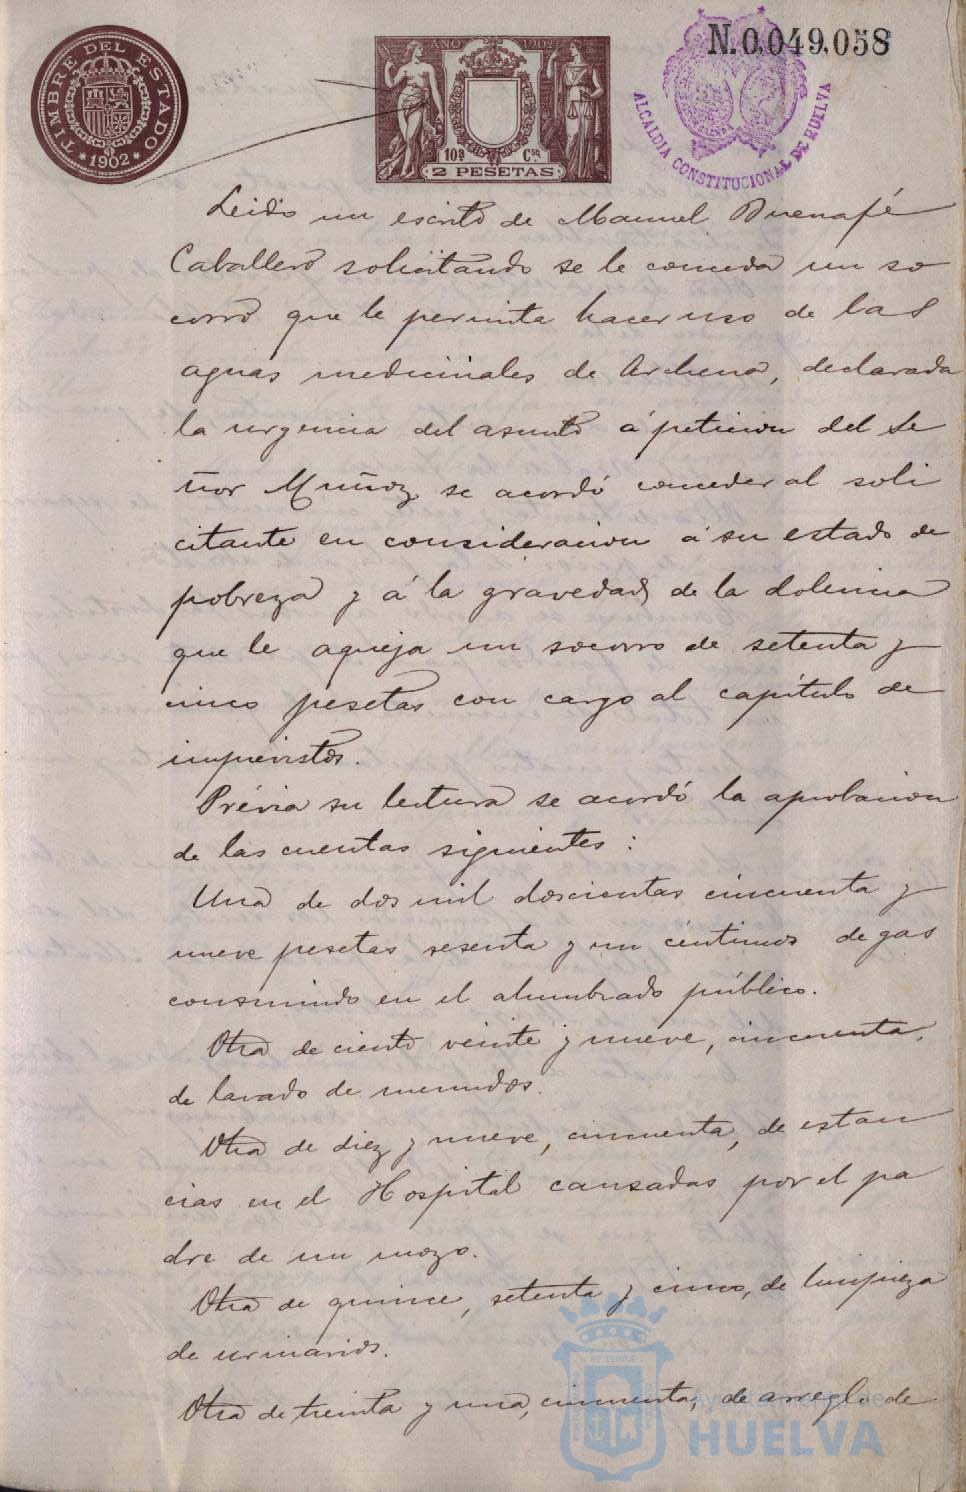 TIMBRE DEL ESTADO
* 1902 *
AÑO 1902
10ª Cse
2 PESETAS
N.0,049,058
ALCALDIA CONSTITUCIONAL DE HUELVA
Leido un escrito de Manuel Buenafé
Caballero solicitando se le conceda un so
corro que le permita hacer uso de las
aguas medicinales de Archena, declarada
la urgencia del asunto á peticion del Se
ñor Muñoz se acordó conceder al soli
citante en consideracion á su estado de
pobreza y á la gravedad de la dolencia
que le aqueja un socorro de setenta y
cinco pesetas con cargo al capítulo de
imprevistos.
Prévia su lectura se acordó la aprobacion
de las cuentas siguientes:
Una de dos mil doscientas cincuenta y
nueve pesetas sesenta y un céntimos de gas
consumido en el alumbrado público.
Otra de ciento veinte y nueve, cincuenta,
de lavado de menudos.
Otra de diez y nueve, cincuenta, de estan
cias en el Hospital causadas por el pa
dre de un mozo.
Otra de quince, setenta y cinco, de limpieza
de urinarios.
Otra de treinta y una, cincuenta, de arreglo de
Ayuntamiento de
HUELVA